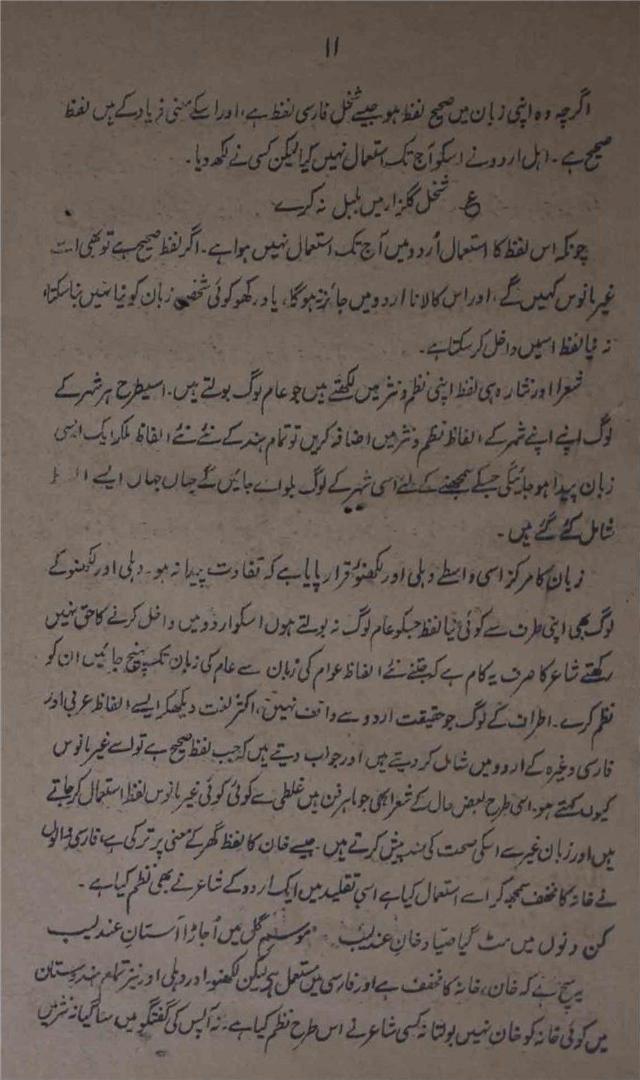 ۱۱
اگرچہ وہ اپنی زبان میں صحیح لفظ ہو جیسے شخل فارسی لفظ ہے، اور اسکے معنی فریاد کے ہیں لفظ
صحیح ہے۔ اہل اردو نے اسکو آج تک استعمال نہیں کیا لیکن کسی نے لکھ دیا۔
ع شخل گلزار میں بلبل نہ کرے
چونکہ اس لفظ کا استعمال اُردو میں آج تک استعمال نہیں ہوا ہے۔ اگر لفظ صحیح ہے تو بھی اسے
غیر مانوس کہیں گے، اور اس کا لانا اردو میں جائز نہ ہوگا، یاد رکھو کوئی شخص زبان کو نیا نہیں بنا سکتا،
نہ نیا لفظ اسمیں داخل کر سکتا ہے۔
شعرا اور نثار وہی لفظ اپنی نظم و نثر میں لکھتے ہیں جو عام لوگ بولتے ہیں۔ اسیطرح ہر شہر کے
لوگ اپنے اپنے شہر کے الفاظ نظم و نثر میں اضافہ کریں تو تمام ہند کے نئے نئے الفاظ ملکر ایک ایسی
زبان پیدا ہو جائیگی جسکے سمجھنے کے لئے اُسی شہر کے لوگ بلواے جائیں گے جہاں جہاں ایسے
شامل کئے گئے ہیں۔
زبان کا مرکز اسی واسطے دہلی اور لکھنؤ قرار پایا ہے کہ تفاوت پیدا نہ ہو۔ دہلی اور لکھنؤ کے
لوگ بھی اپنی طرف سے کوئی نیا لفظ جسکو عام لوگ نہ بولتے ہوں اسکو اردو میں داخل کرنے کا حق نہیں
رکھتے شاعر کا صرف یہ کام ہے کہ جتنے نئے الفاظ عوام کی زبان سے عام کی زبان تک پہنچ جائیں ان کو
نظم کرے۔ اطراف کے لوگ جو حقیقت اردو سے واقف نہیں، اکثر لغت دیکھکر ایسے الفاظ عربی اور
فارسی وغیرہ کے اردو میں شامل کر دیتے ہیں اور جواب دیتے ہیں کہ جب لفظ صحیح ہے تو اسے غیر مانوس
کیوں کہتے ہو۔ اسی طرح بعض حال کے شعرا بھی جو ماہر فن ہیں غلطی سے کوئی کوئی غیر مانوس لفظ استعمال کر جاتے
ہیں اور زبان غیر سے اسکی صحت کی سند پیش کرتے ہیں۔ جیسے خان کا لفظ گھر کے معنی پر ترکی ہے، فارسی والوں
نے خانہ کا مخفف سمجھ کر اسے استعمال کیا ہے اسی تقلید میں ایک اردو کے شاعر نے بھی نظم کیا ہے۔
کن دنوں میں مٹ گیا صیاد خانِ عندلیب موسمِ گل میں اُجاڑا آستانِ عندلیب
یہ سچ ہے کہ خان، خانہ کا مخفف ہے اور فارسی میں مستعمل ہے لیکن لکھنؤ اور دہلی اور نیز تمام ہندوستان
میں کوئی خانہ کو خان نہیں بولتا نہ کسی شاعر نے اس طرح نظم کیا ہے۔ نہ آپس کی گفتگو میں سنا گیا نہ نثر میں